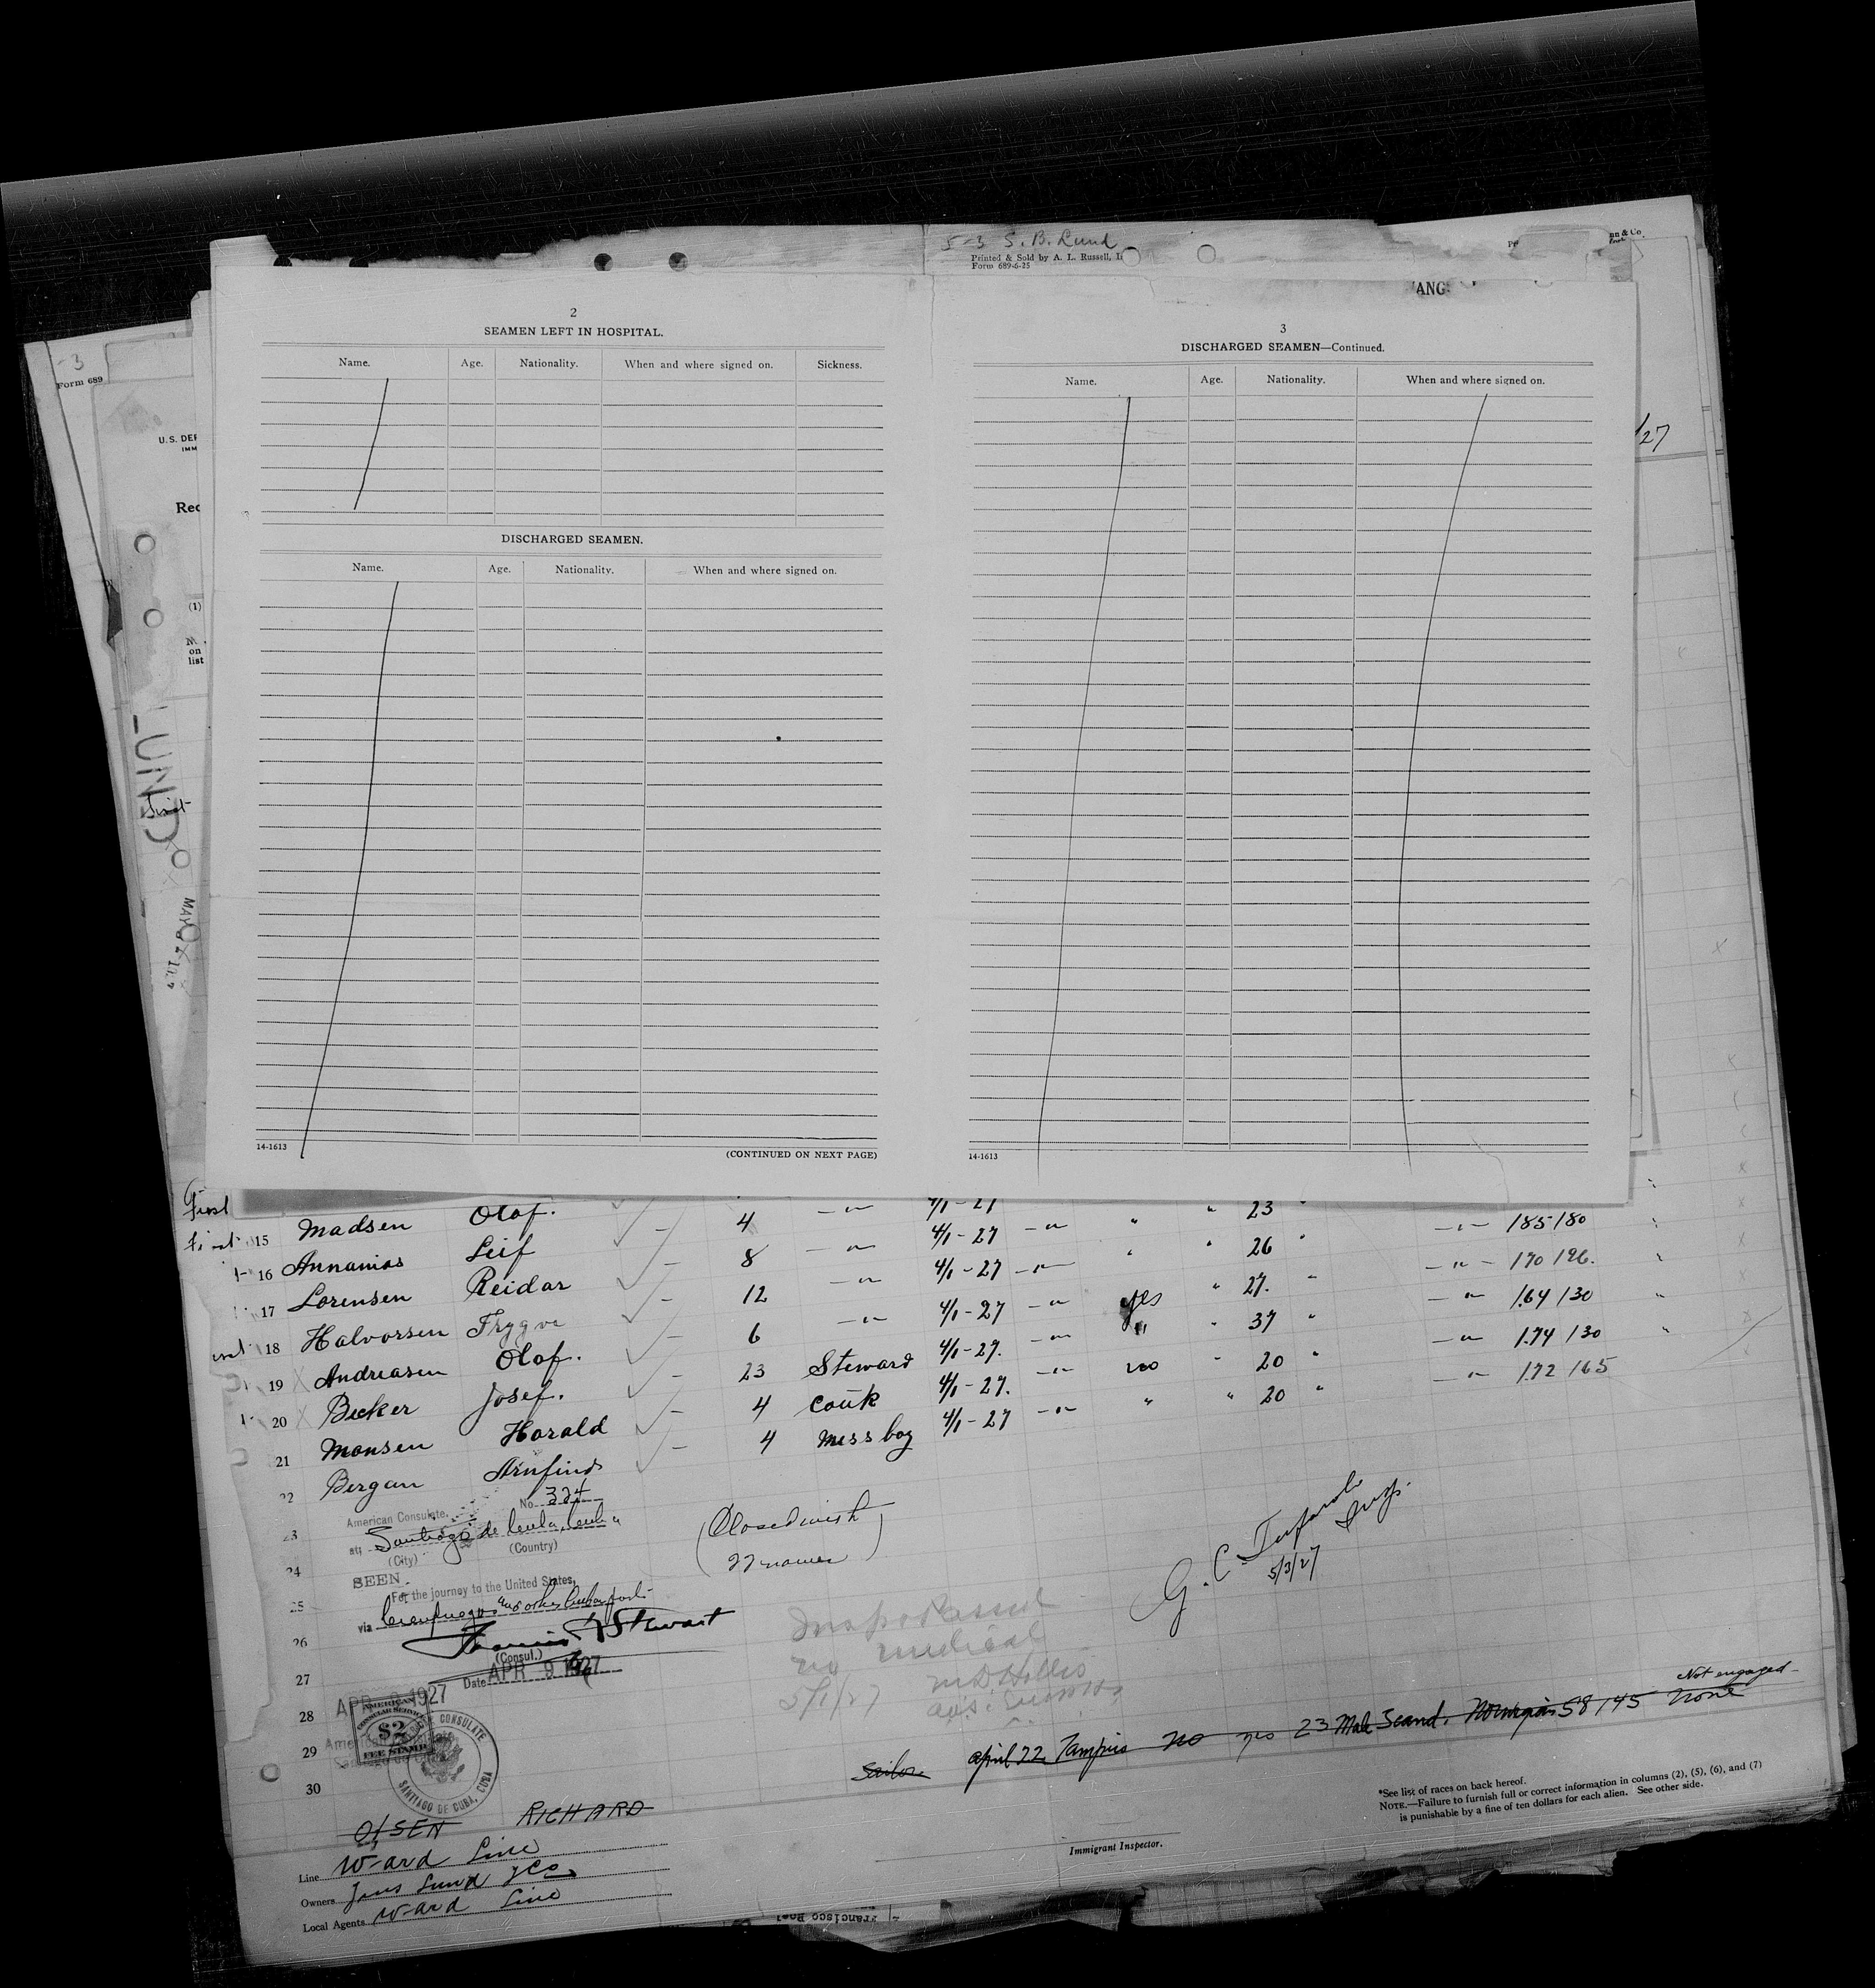 5-3 S. B. Lund
Printed & Sold by A. L. Russell, I
Form 689-6-25
nn & Co
-3
Form 689
U. S. DEP
IMM
Rec
(1)
on
list
First
MAY
/27
ANG
2
SEAMEN LEFT IN HOSPITAL.
Name. Age. Nationality. When and where signed on. Sickness.
DISCHARGED SEAMEN.
Name. Age. Nationality. When and where signed on.
14-1613
(CONTINUED ON NEXT PAGE)
3
DISCHARGED SEAMEN—Continued.
Name. Age. Nationality. When and where signed on.
14-1613
First
15 Madsen Olof. 4 —"— 4/1-27 " " 23 " —"— 185 180 "
16 Annanias Leif 8 —"— 4/1-27 —"— " " 26 " —"— 170 196. "
17 Lorensen Reidar 12 —"— 4/1-27 —"— yes " 27. " —"— 1.64 130 "
18 Halvorsen Trygve 6 —"— 4/1-27 —"— " " 37 " —"— 1.74 130 "
19 Andreasen Olof. 23 Steward 4/1-27. —"— no " 20 " —"— 1.72 165
20 Becker Josef. 4 Couk 4/1-27. —"— " " 20 "
21 Monsen Harald 4 Mess boy 4/1-27 —"—
22 Bergan Arnfind
23
24
25
26
27
28
29
30
American Consulate. No. 334
at Santiago de Cuba, Cuba
(City) (Country)
SEEN.
For the journey to the United States,
via Cienfuegos and other Cuban ports
Francis Stewart
(Consul.)
Date APR 9 1927
APR 9 1927
AMERICAN
CONSULAR SERVICE
$2
FEE STAMP
CONSULATE
SANTIAGO DE CUBA, CUBA
(Closed with
22 names)
G. C. Insp.
5/3/27
Insp & Passed
no medical
5/1/27 M. D. Hollis
Sailor April 22 Tampico no yes 23 Male Scand. Norwegian 58 145 none
Not engaged
OLSEN RICHARD
Line Ward Line
Owners Jens Lund & Co
Local Agents Ward Line
Immigrant Inspector.
*See list of races on back hereof.
NOTE.—Failure to furnish full or correct information in columns (2), (5), (6), and (7)
is punishable by a fine of ten dollars for each alien. See other side.
Francisco